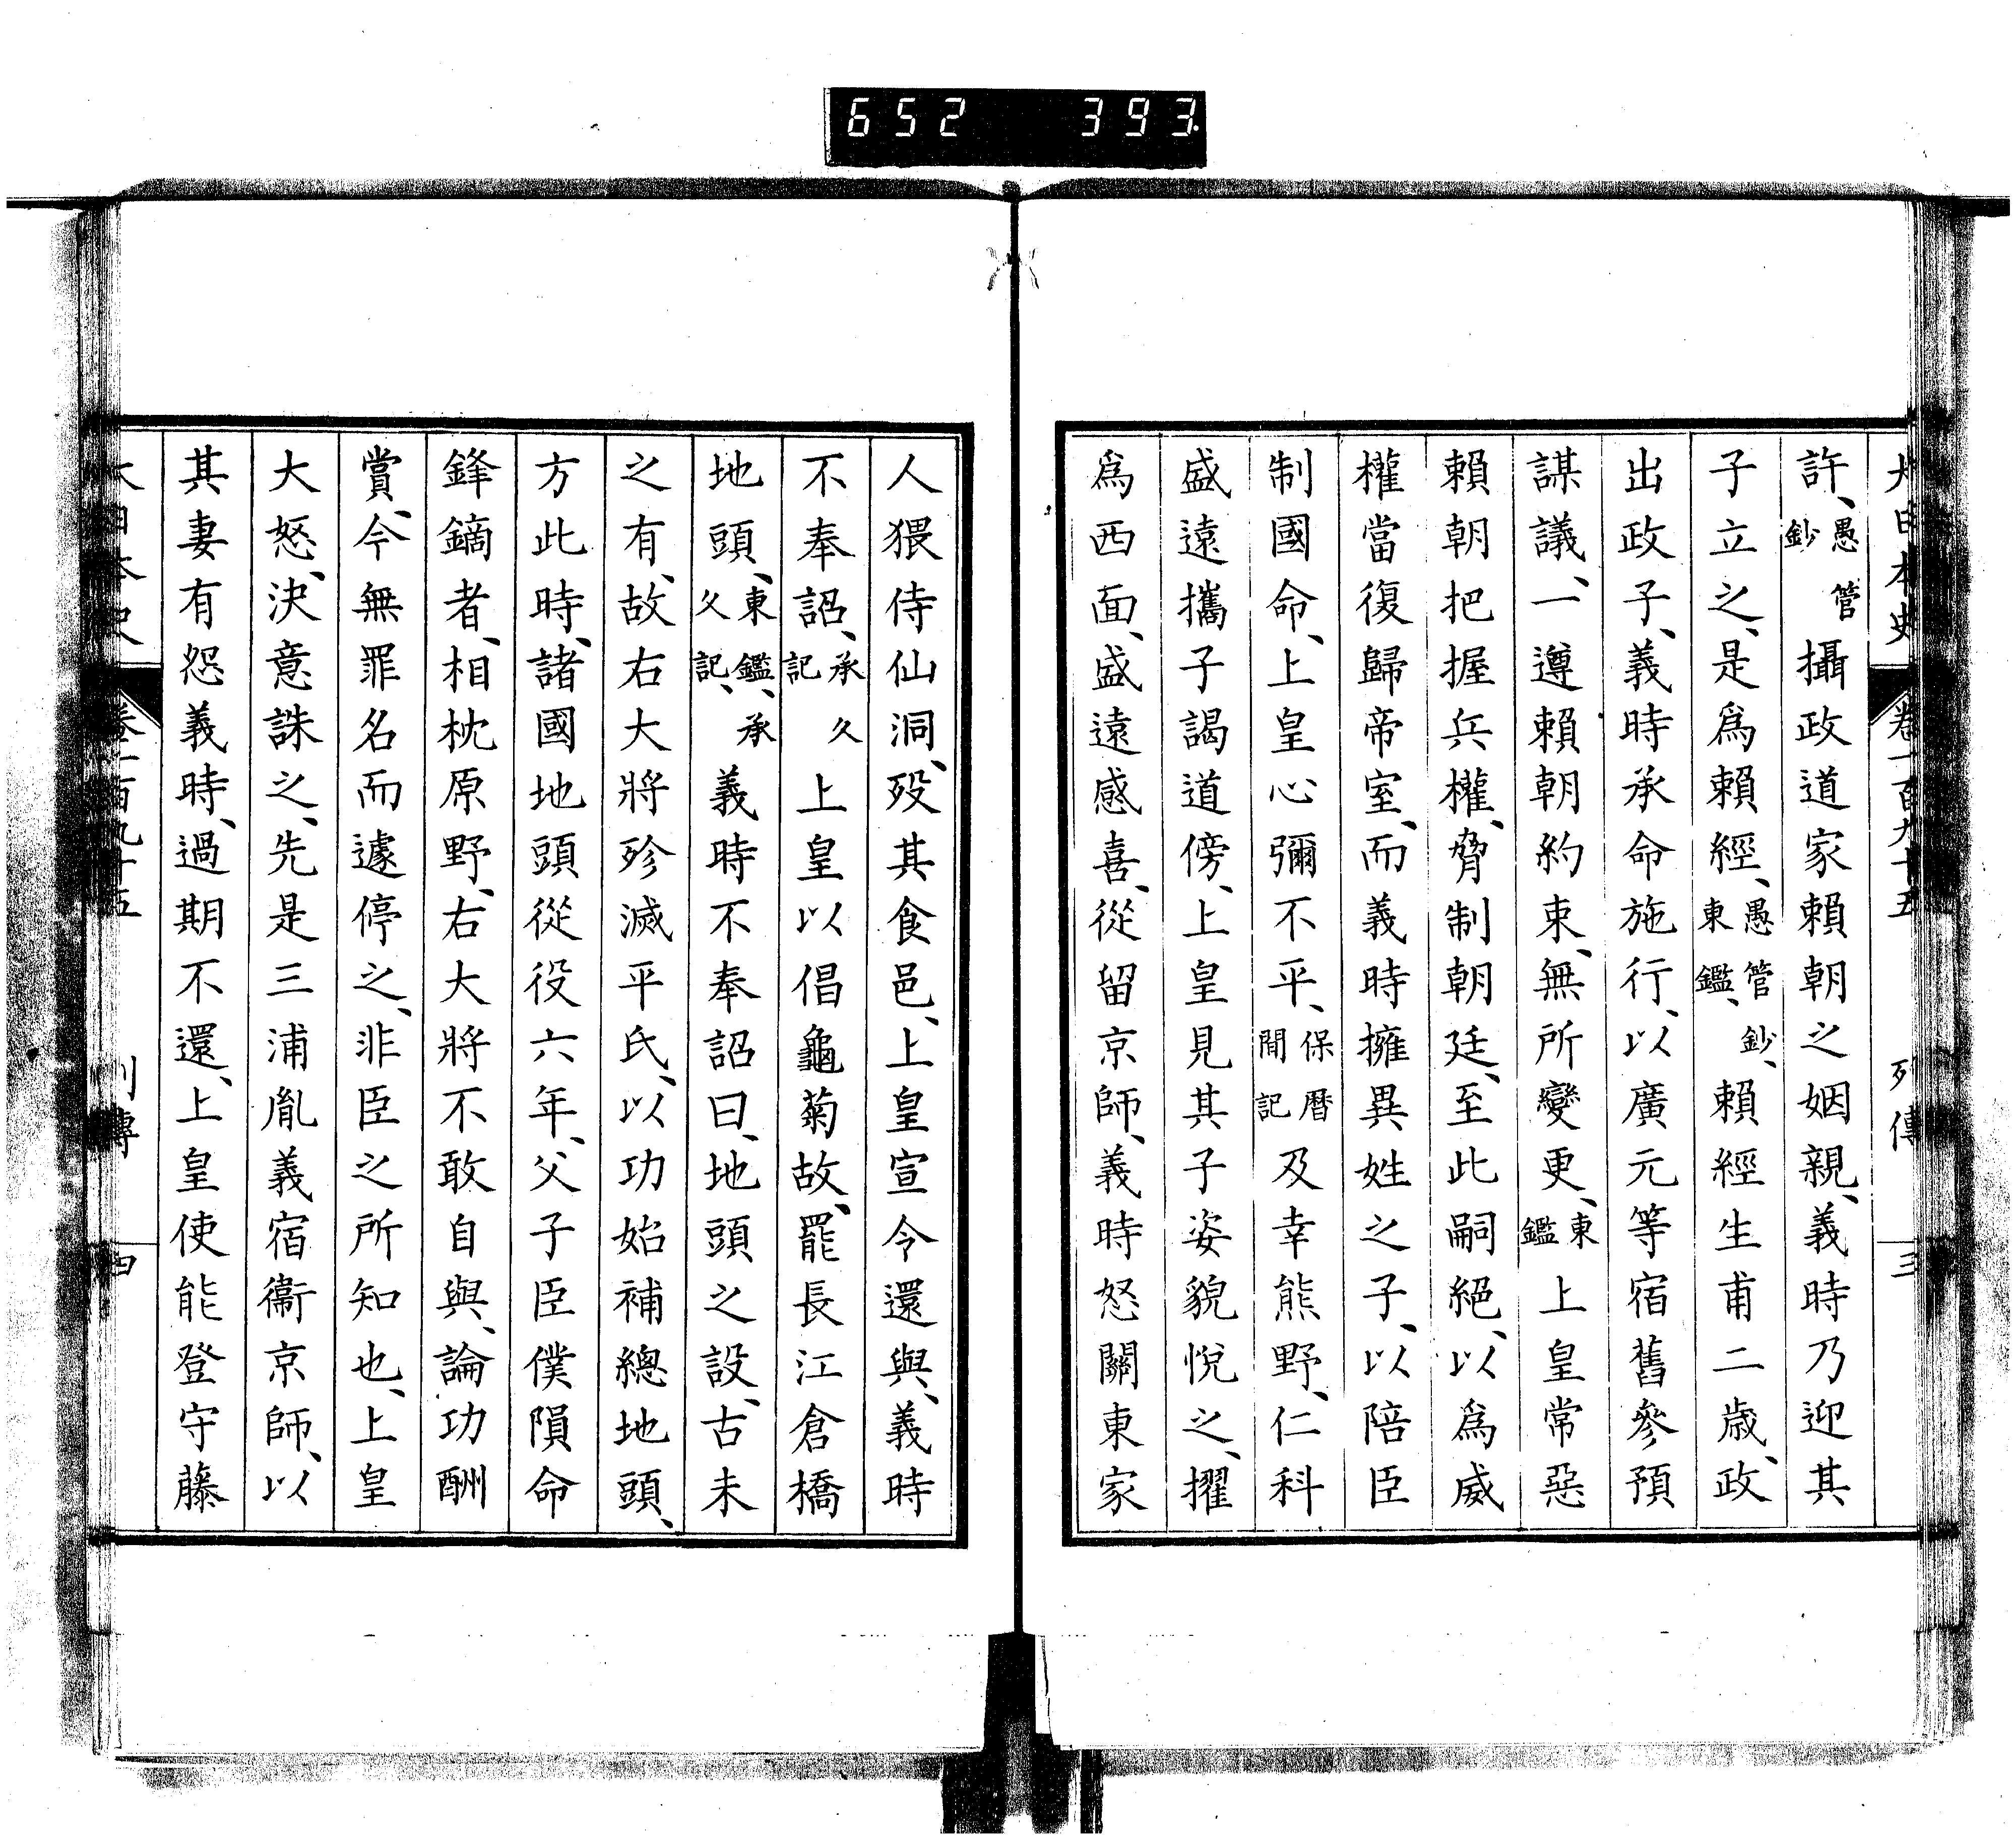 652 393.
大日本史 卷一百九十五 列傳 三
許、愚管鈔攝政道家賴朝之姻親、義時乃迎其
子立之、是爲賴經、愚管鈔、東鑑、賴經生甫二歲、政
出政子、義時承命施行、以廣元等宿舊參預
謀議、一遵賴朝約束、無所變更、東鑑上皇常惡
賴朝把握兵權、脅制朝廷、至此嗣絕、以爲威
權當復歸帝室、而義時擁異姓之子、以陪臣
制國命、上皇心彌不平、保曆間記及幸熊野、仁科
盛遠攜子謁道傍、上皇見其子姿貌悅之、擢
爲西面、盛遠感喜、從留京師、義時怒關東家
人猥侍仙洞、歿其食邑、上皇宣令還與、義時
不奉詔、承久記上皇以倡龜菊故、罷長江倉橋
地頭、東鑑、承久記、義時不奉詔曰、地頭之設、古未
之有、故右大將殄滅平氏、以功始補總地頭、
方此時、諸國地頭從役六年、父子臣僕隕命
鋒鏑者、相枕原野、右大將不敢自與、論功酬
賞、今無罪名而遽停之、非臣之所知也、上皇
大怒、決意誅之、先是三浦胤義宿衞京師、以
其妻有怨義時、過期不還、上皇使能登守藤
大日本史 卷一百九十五 列傳 四